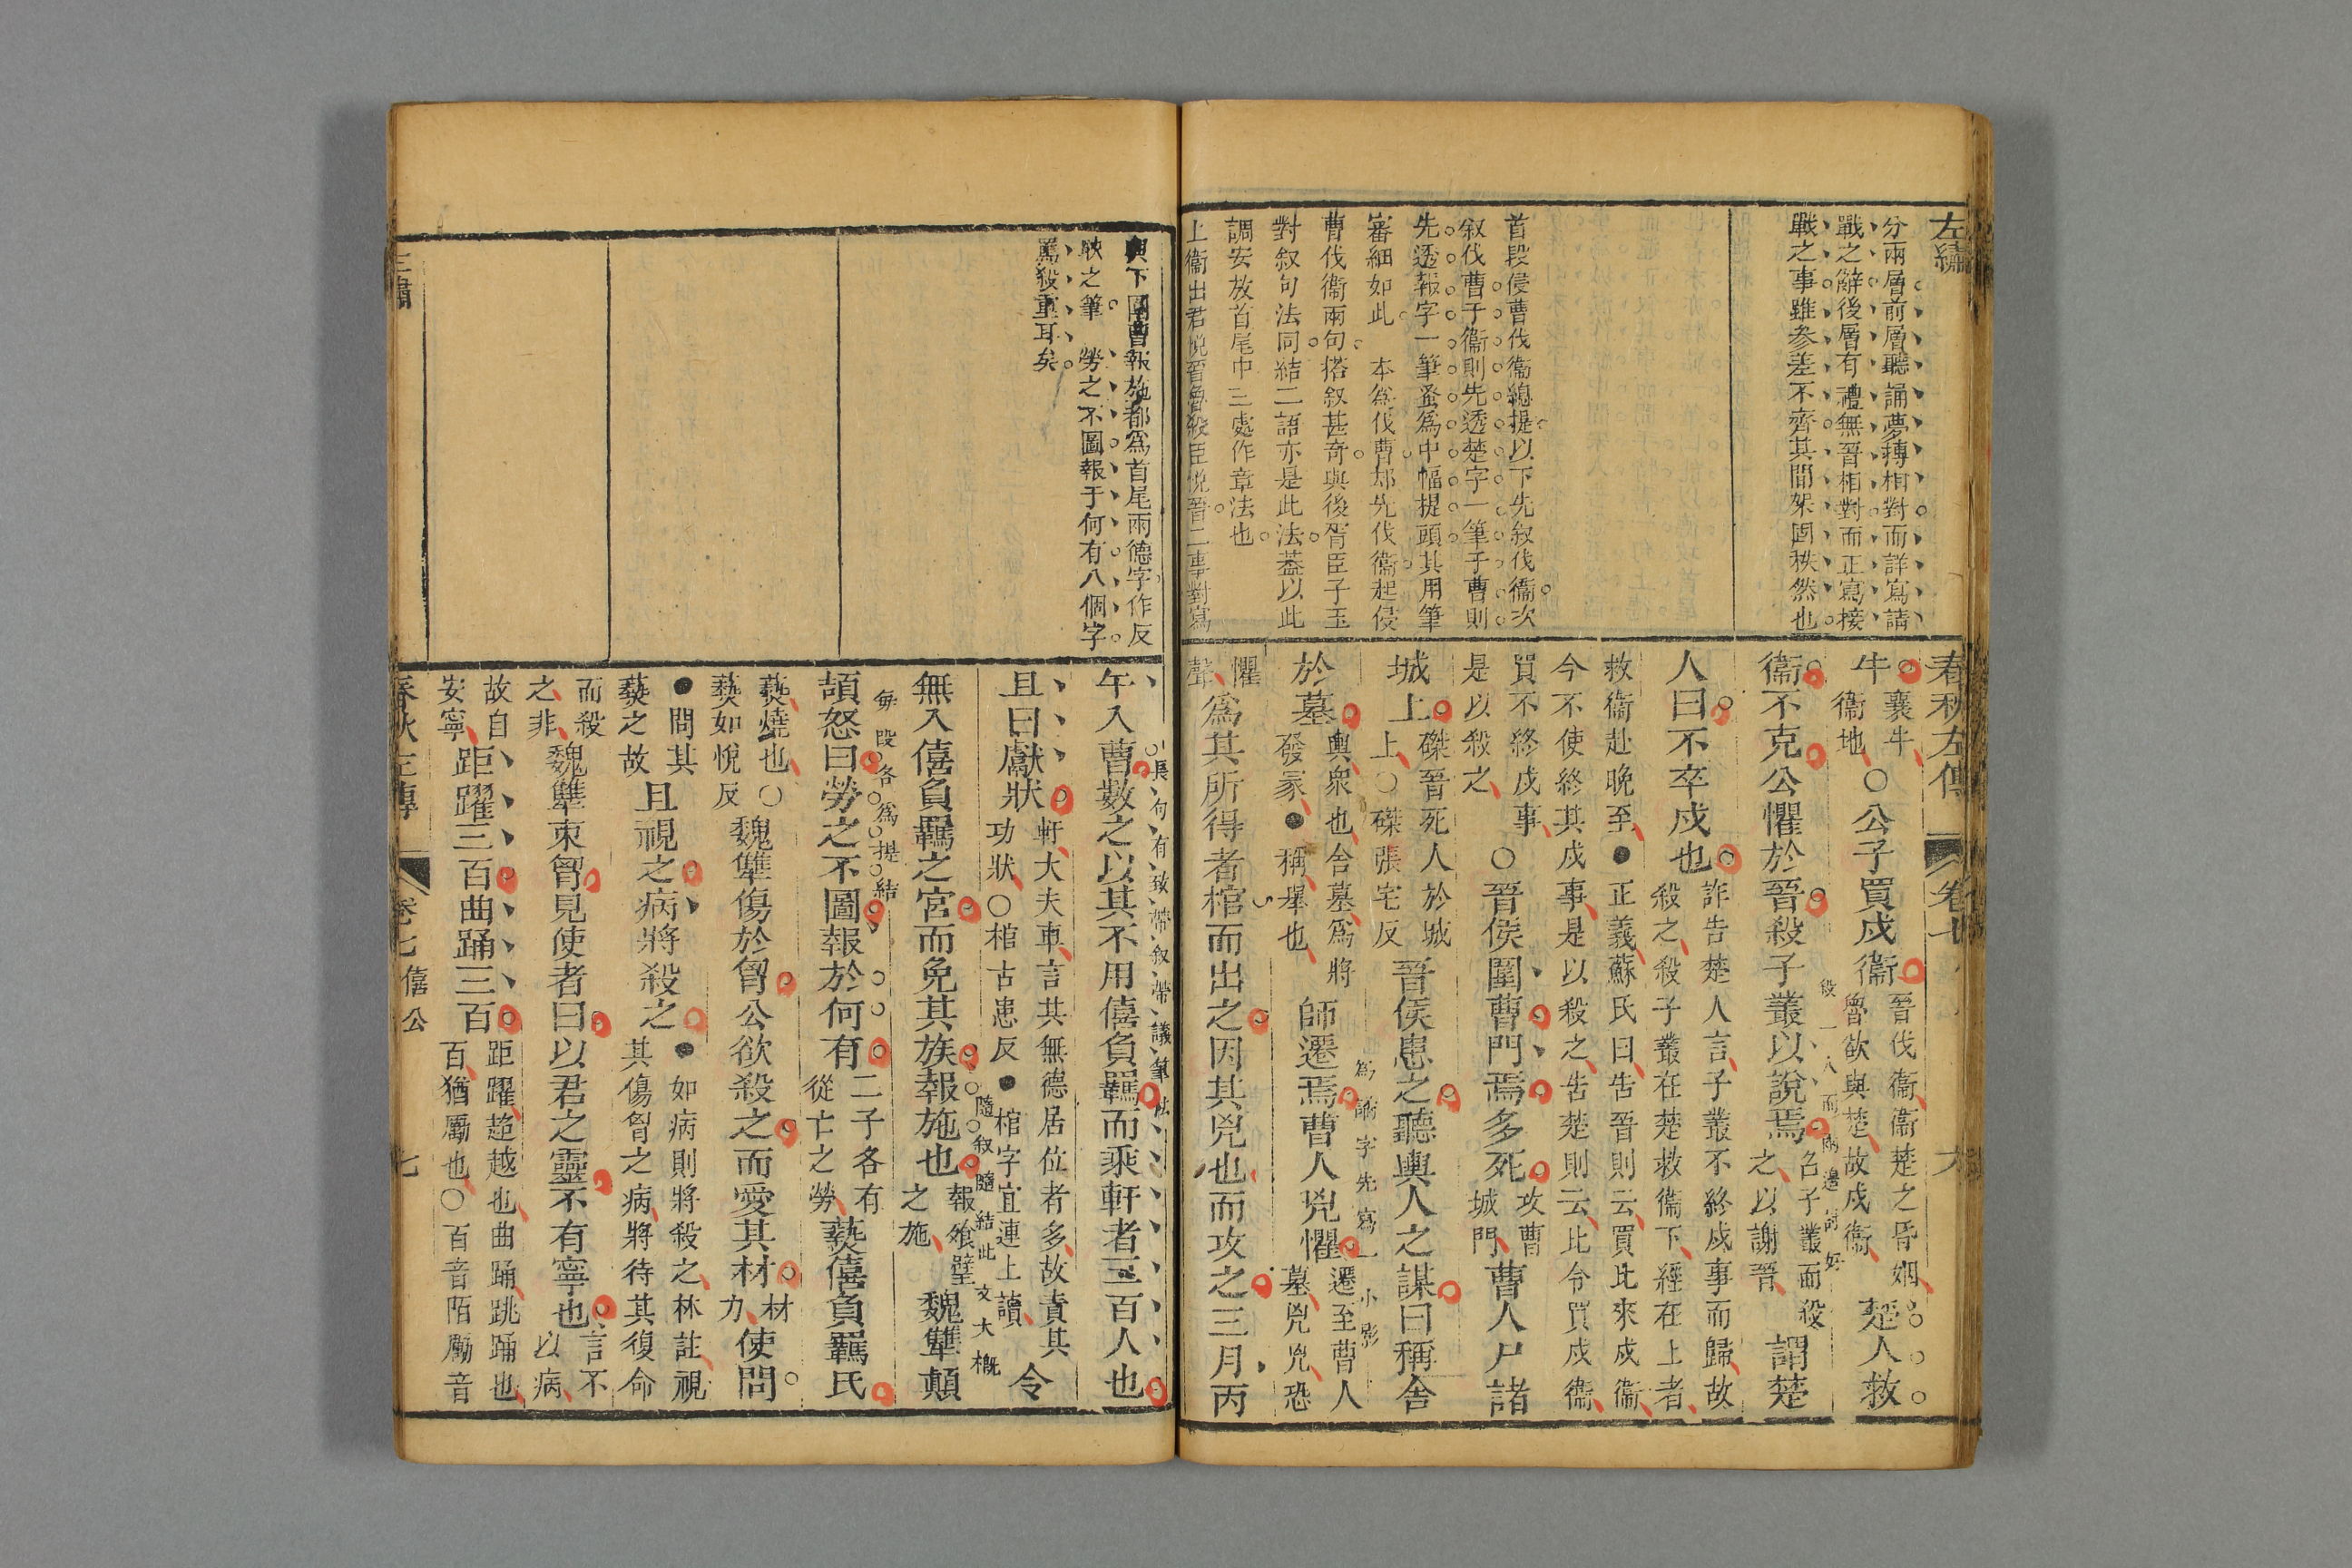 左繡
分兩層前層聽誦夢搏相對而詳寫請
戰之辭後層有禮無晉相對而正寫接
戰之事雖參差不齊其間架固秩然也
首段侵曹伐衞總提以下先叙伐衞次
叙伐曹于衞則先透楚字一筆于曹則
先透報字一筆蚤爲中幅提頭其用筆
審細如此 本爲伐曹却先伐衞起侵
曹伐衞兩句搭叙甚奇與後胥臣子玉
對叙句法同結二語亦是此法葢以此
調安放首尾巾三處作章法也
上衞出君悅晉魯殺臣悅晉二事對寫
春秋左傳 卷七 六
牛襄牛衞地○公子買戍衞晉伐衞衞楚之昏姻魯欲與楚故戍衞楚人救
衞不克公懼於晉殺子叢以說焉召子叢而殺之以謝晉謂楚
殺一人而兩邊討好
人曰不卒戍也詐告楚人言子叢不終戍事而歸故殺之殺子叢在楚救衞下經在上者
救衞赴晚至●正義蘇氏曰告晉則云買比來戍衞今不使終其戍事是以殺之告楚則云比令買戍衞
買不終戍事是以殺之○晉侯圍曹門焉多死攻曹城門曹人尸諸
城上磔晉死人於城上○磔張宅反晉侯患之聽輿人之謀曰稱舍
爲誦字先寫一小影
於墓輿衆也舍墓爲將發冢●稱舉也師遷焉曹人兇懼遷至曹人墓兇兇恐
懼聲爲其所得者棺而出之因其兇也而攻之三月丙
與下圍曹報施都爲首尾兩德字作反
映之筆 勞之不圖報于何有八個字
罵殺重耳矣
午入曹數之以其不用僖負羈而乘軒者三百人也
長句有致帶叙帶議筆法
且曰獻狀軒大夫車言其無德居位者多故責其功狀○棺古患反●棺字宜連上讀令
無入僖負羈之宮而免其族報施也報飧璧之施魏犨顛
隨叙隨結此文大槪
每段各爲提結
頡怒曰勞之不圖報於何有二子各有從亡之勞爇僖負羈氏
爇燒也○爇如悅反魏犨傷於胷公欲殺之而愛其材材力使問
●問其爇之故且視之病將殺之●如病則將殺之林註視其傷胷之病將待其復命
而殺之非魏犨束胷見使者曰以君之靈不有寧也言不以病
故自安寧距躍三百曲踊三百距躍超越也曲踊跳踊也百猶勵也○百音陌勵音
春秋左傳 卷七 僖公 七